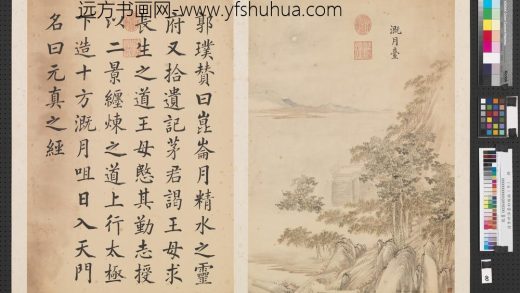 远方书画网-www.yfshuhua.com
溉月臺
郭璞賛曰崑崙月精水之靈
府又拾遺記茅君謁王母求
長生之道王母愍其勤志授
以二景纏煉之道上行太極
下造十方溉月咀日入天門
名曰元真之經